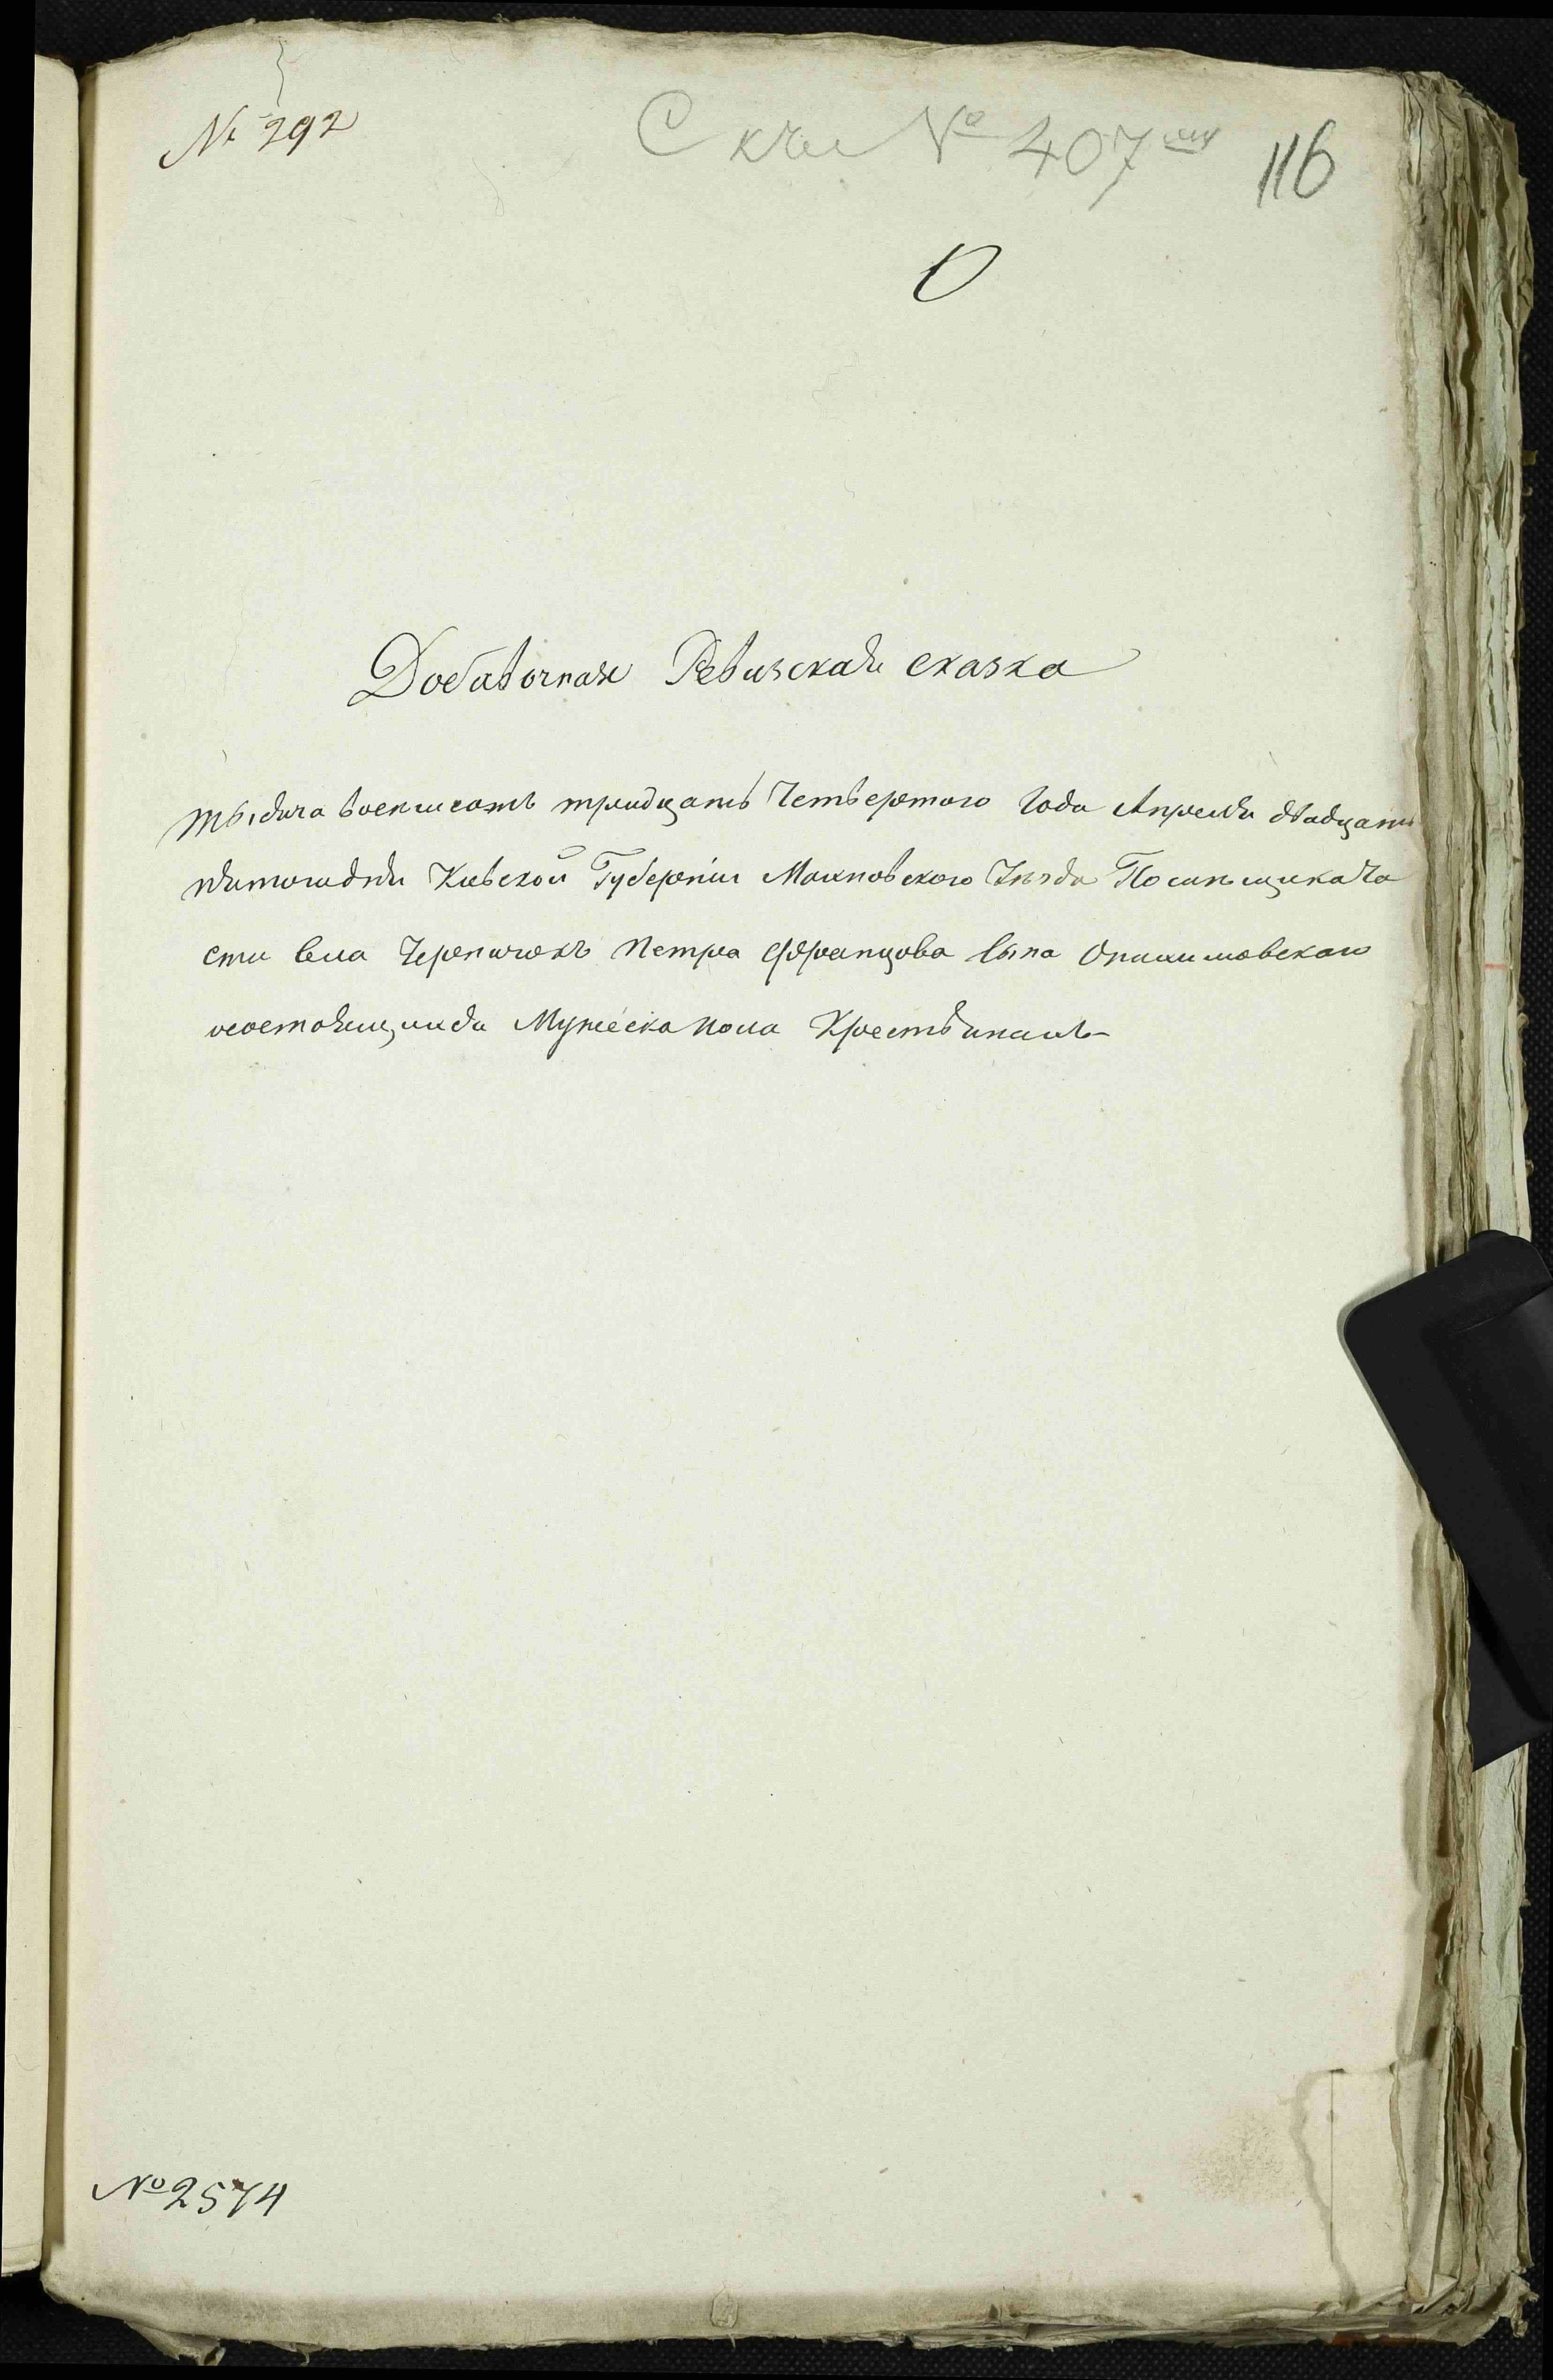 № 292
С к № 407
116
Добавочная Ревизская сказка
тысяча восемсотъ тридцать Четвертого Года Апреля двадцать
пятого дня Киевской Губерніи Махновского Уезда Посильщика Ча
сти села Черепинокъ Петра Францова сына
осостоящихъ Мужеска пола Крестьянахъ
№ 2574